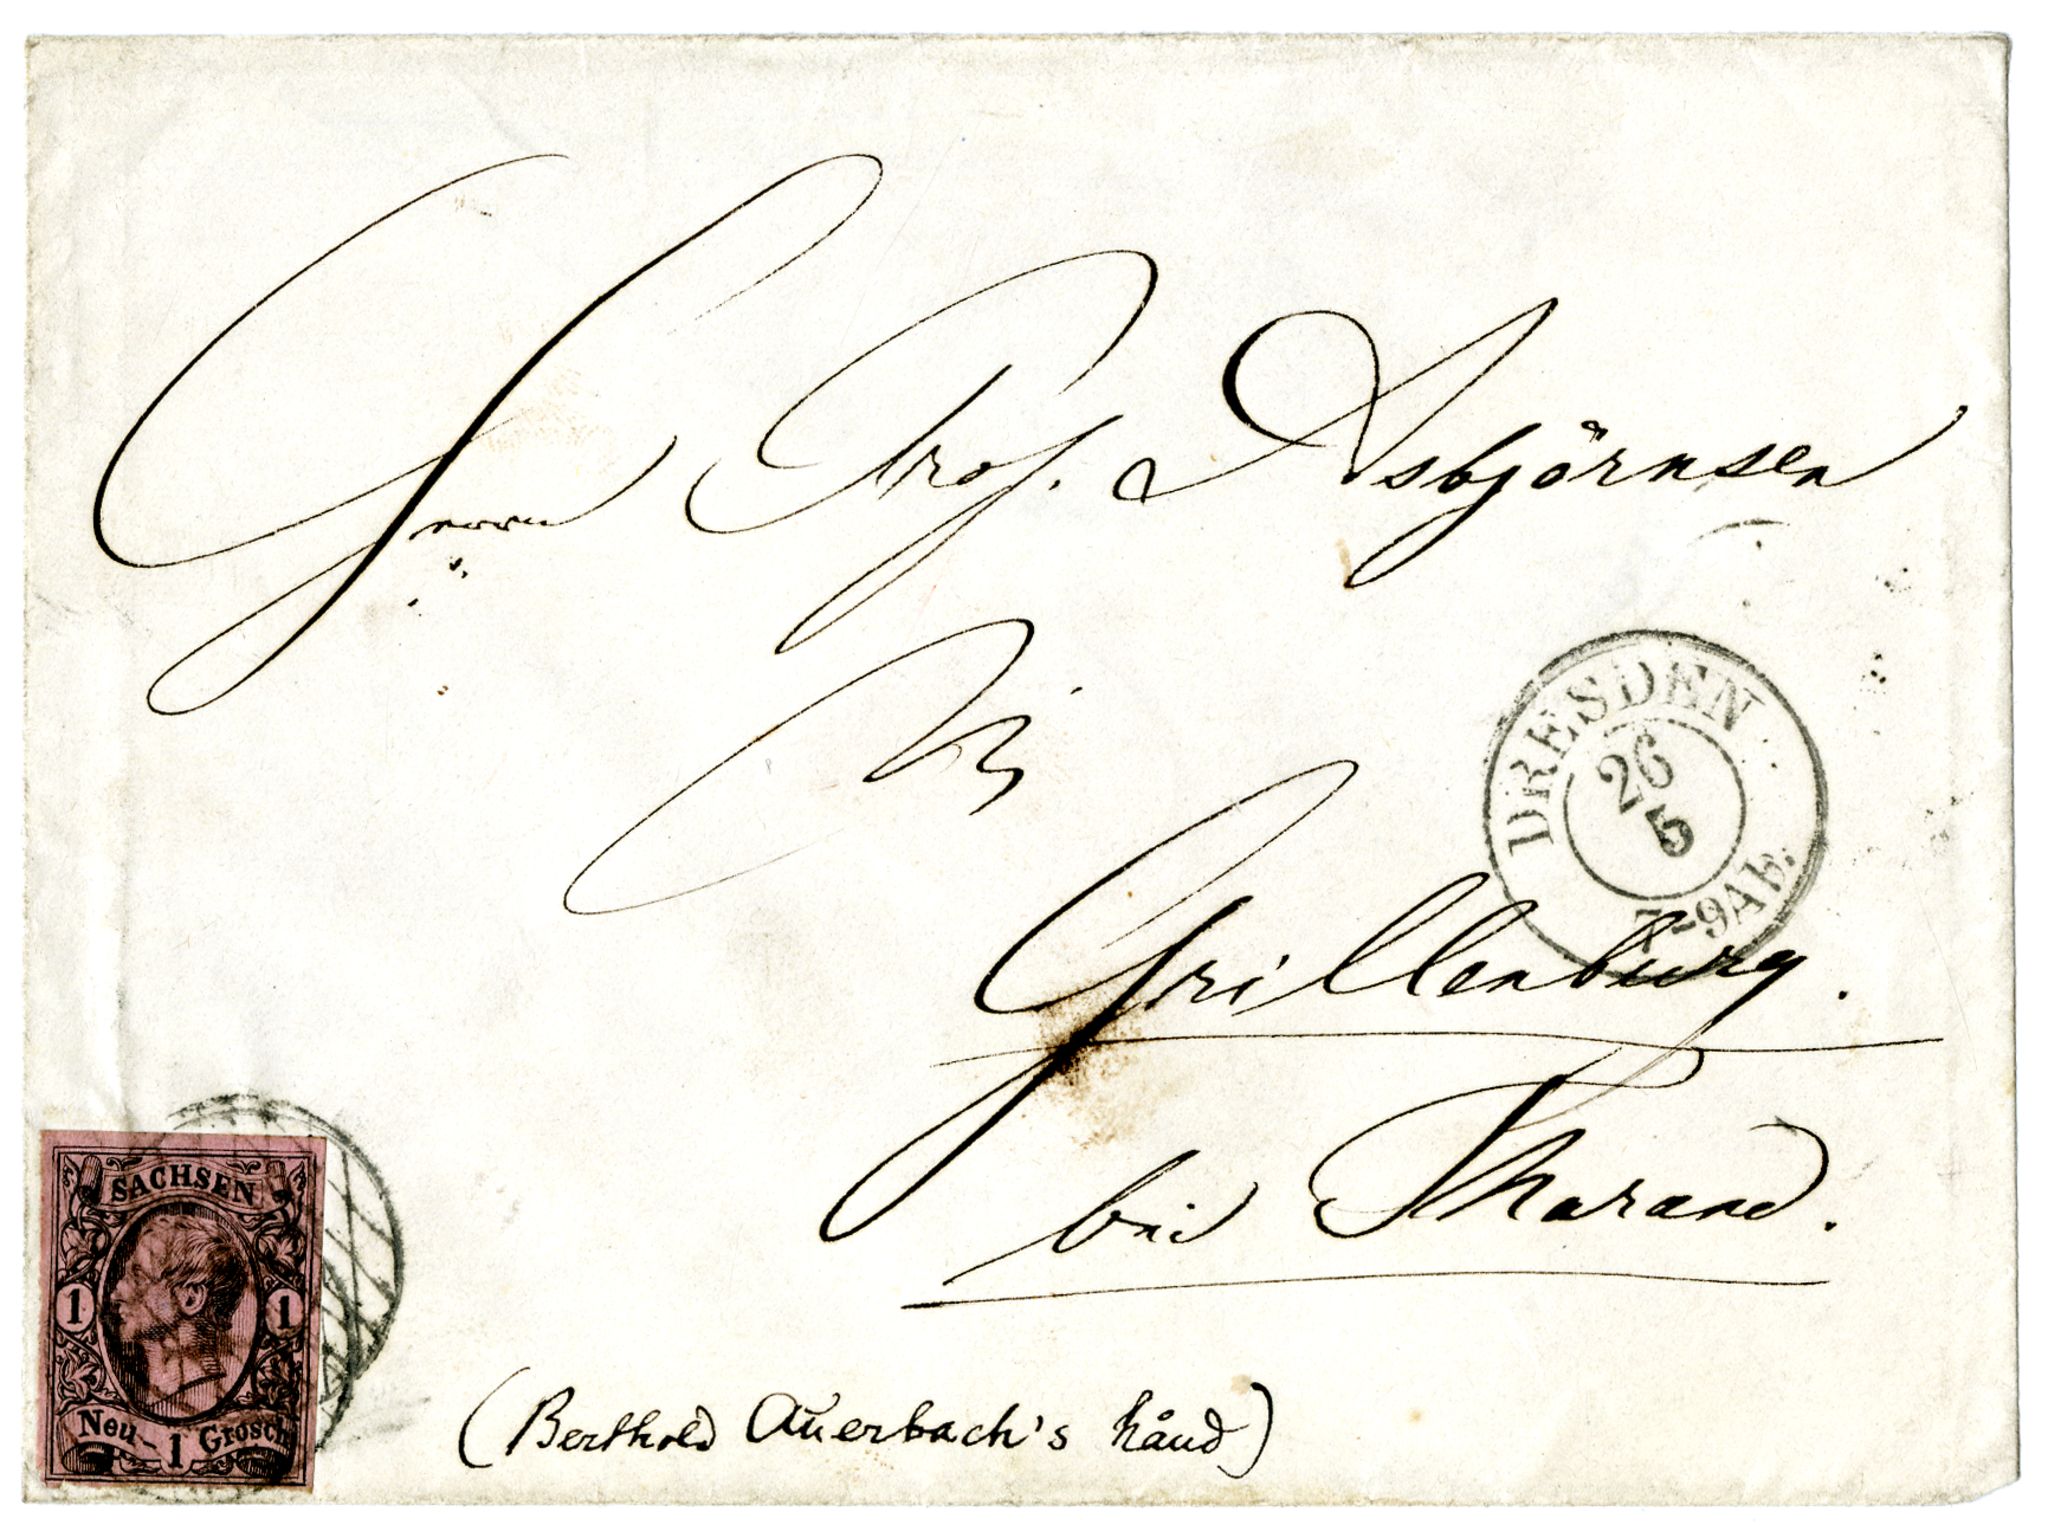 Herrn Prof. Asbjörnsen
In
Grillenburg.
bei Tharand.
DRESDEN
26
5
7-9 Ab.
SACHSEN
1 1
Neu- 1 Grosch
(Berthold Auerbach's hånd)